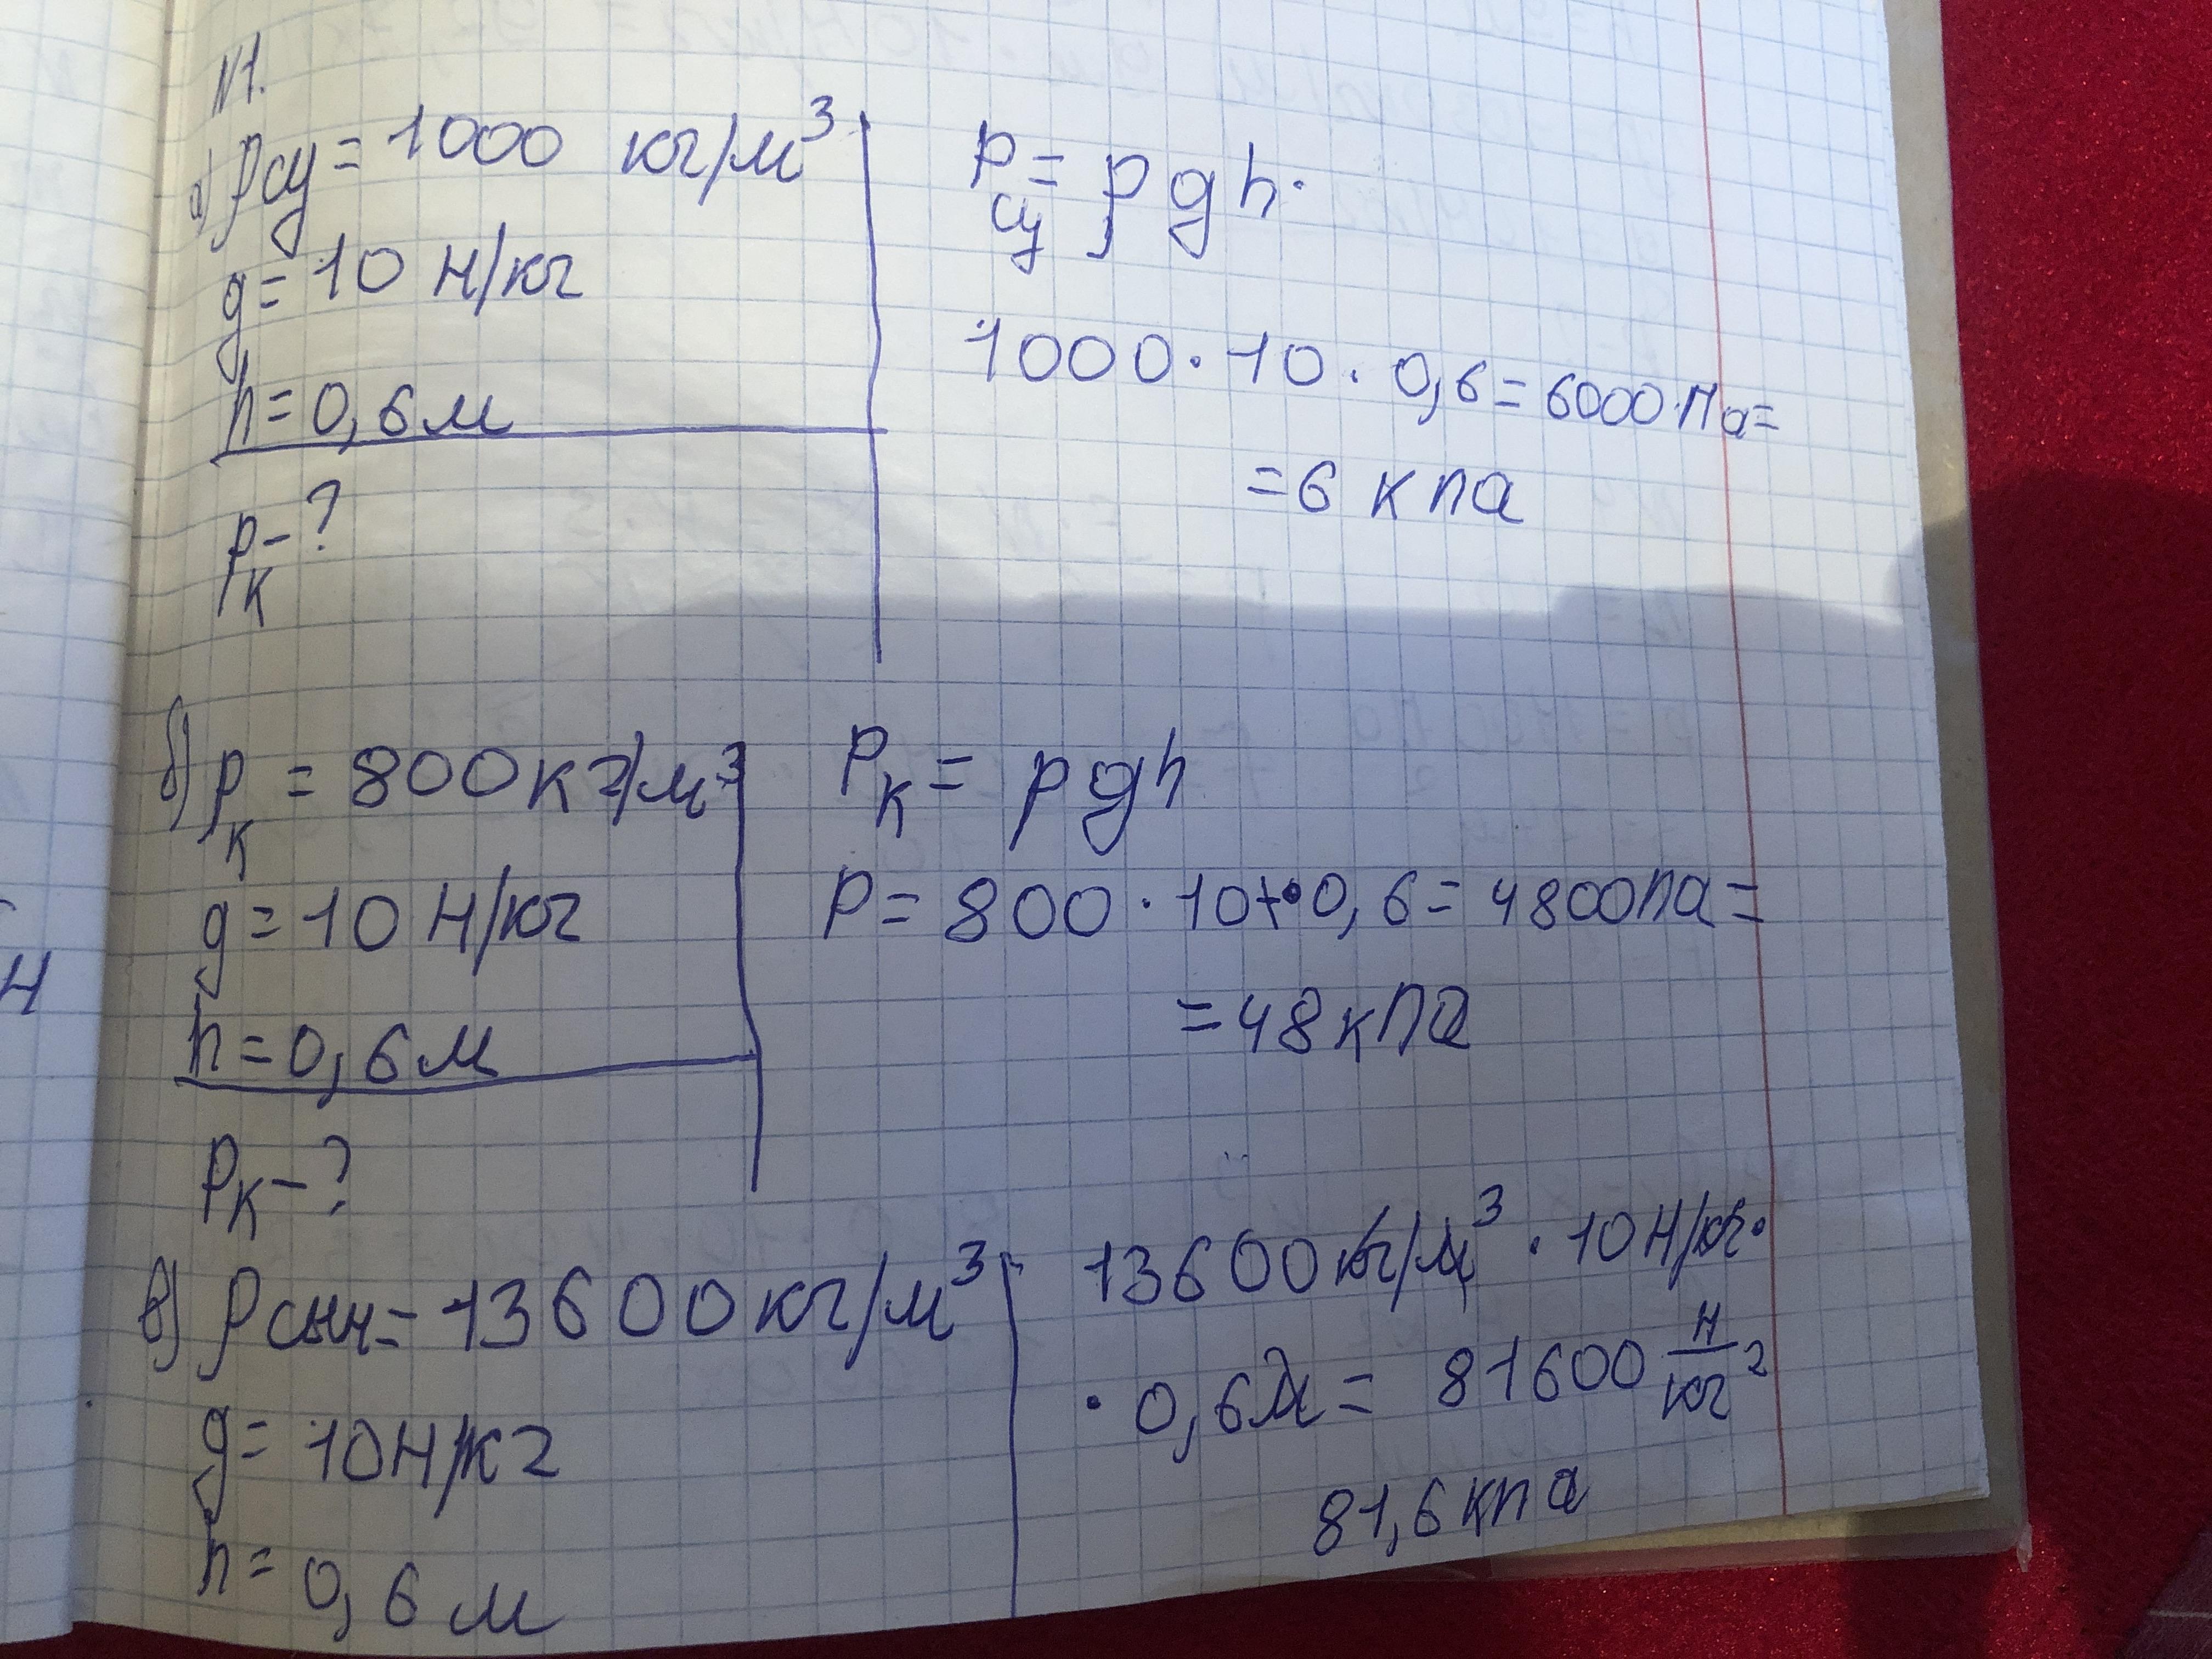 N1.
а) ρсу = 1000 кг/м³
g = 10 Н/кг
h = 0,6 м
Pк - ?
Pсу = ρgh.
1000 · 10 · 0,6 = 6000 Па =
= 6 кПа
б) ρк = 800 кг/м³
g = 10 Н/кг
h = 0,6 м
Pк - ?
Pк = ρgh
P = 800 · 10 · 0,6 = 4800 Па =
= 48 кПа
в) ρсын = 13600 кг/м³
g = 10 Н/кг
h = 0,6 м
13600 кг/м³ · 10 Н/кг ·
· 0,6 м = 81600 Н/кг²
81,6 кПа
Н